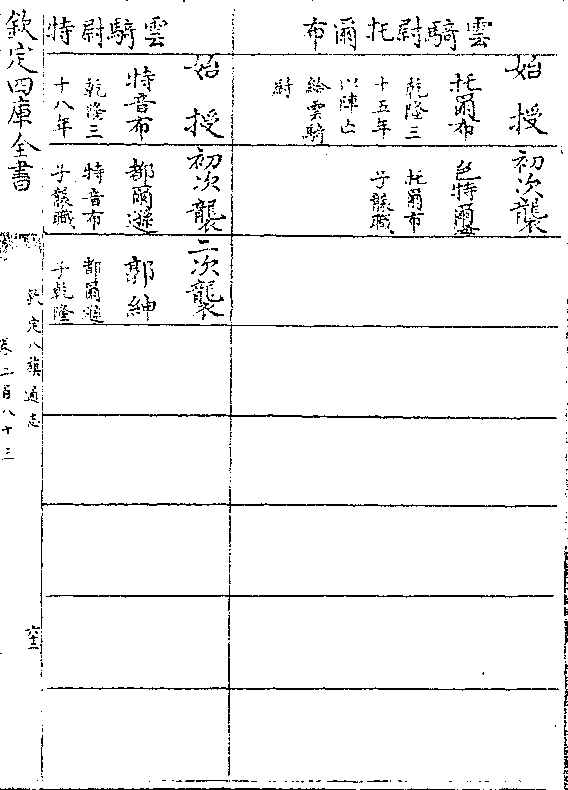 雲騎尉托爾布
始授
托爾布
乾隆三
十五年
以陣亡
給雲騎
尉
初次襲
托爾布
子襲職
雲騎尉特
始授
特音布
乾隆三
十八年
初次襲
都爾遜
特音布
子襲職
二次襲
郭紳
都爾遜
子乾隆
欽定四庫全書
欽定八旗通志
卷二百八十三